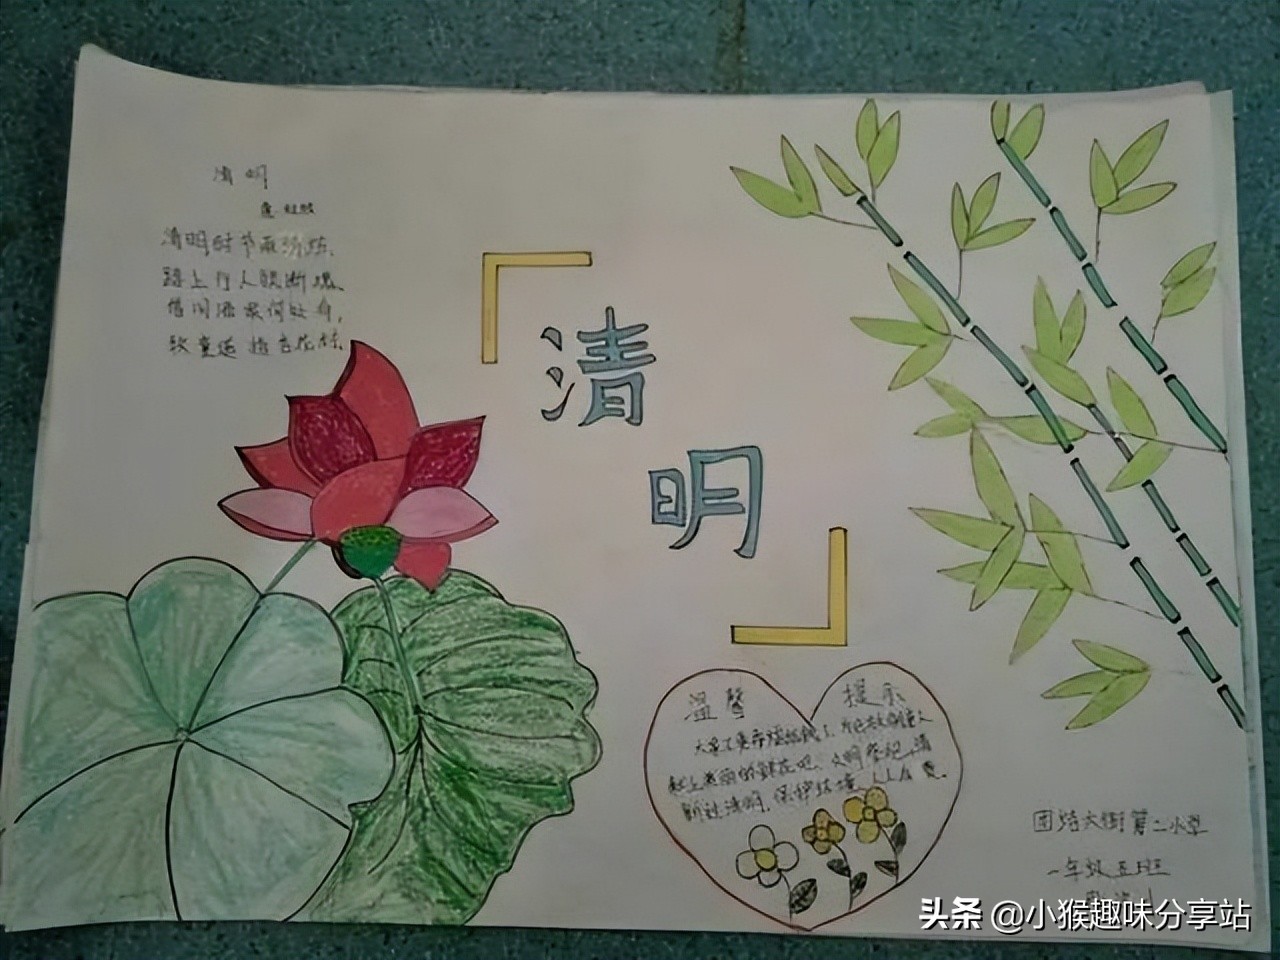 清明
清明时节雨纷纷,
路上行人欲断魂。
借问酒家何处有,
牧童遥指杏花村。
清
明
温馨 提示
大家不要再烧纸钱了,
献上美丽的鲜花吧、文明祭祀,清
明,保护环境,人人有责。
团结大街第二小学
一年级五班
头条 @小猴趣味分享站